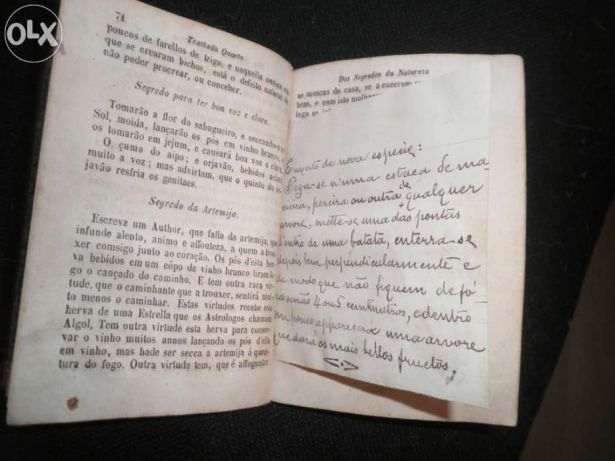 OLX
74
Trattado Quarto
poucos de farellos de trigo, e naquella
que se crearam bichos, está o defeito natural de
não poder procrear, ou conceber.
Segredo para ter boa voz e clara.
Tomarão a flor do sabugueiro, e seccando-a ao
Sol, moida, lançarão os pós em vinho branco,
os tomarão em jejum, e causará boa voz e clara.
O çumo do aipo; e orjavão, bebidos
muito a voz; mas advirtam, que o çumo do or-
javão resfria os genitaes.
Segredo da Artemija.
Escreve um Author, que falla da artemija, que
infunde alento, animo e affouteza, a quem a trou-
xer comsigo junto ao coração. Os pós d'esta her-
va bebidos em um cópo de vinho branco
go o cançado do caminho. E tem outra rara vir-
tude, que o caminhante que a trouxer, sentirá mui-
to menos o caminhar. Estas virtudes recebe esta
herva de uma Estrella que os Astrologos chamam
Algol. Tem outra virtude esta herva para conser-
var o vinho muitos annos lançando os pós d'ella
em vinho, mas hade ser secca a artemija á quen-
tura do fogo. Outra virtude tem, que é affugentar
Dos Segredos da Natureza
as moscas da casa, se á
bem, e com isto
logo
Enxerto de nova especie:
Pega-se n'uma estaca de ma-
cieira, pereira ou outra de qualquer
arvore, mette-se uma das pontas
dentro de uma batata, enterra-se
depois bem perpendicularmente e
de modo que não fiquem de fó-
ra senão 4 ou 5 centimetros, e dentro
em pouco apparecerá uma arvore
que dará os mais bellos fructos.